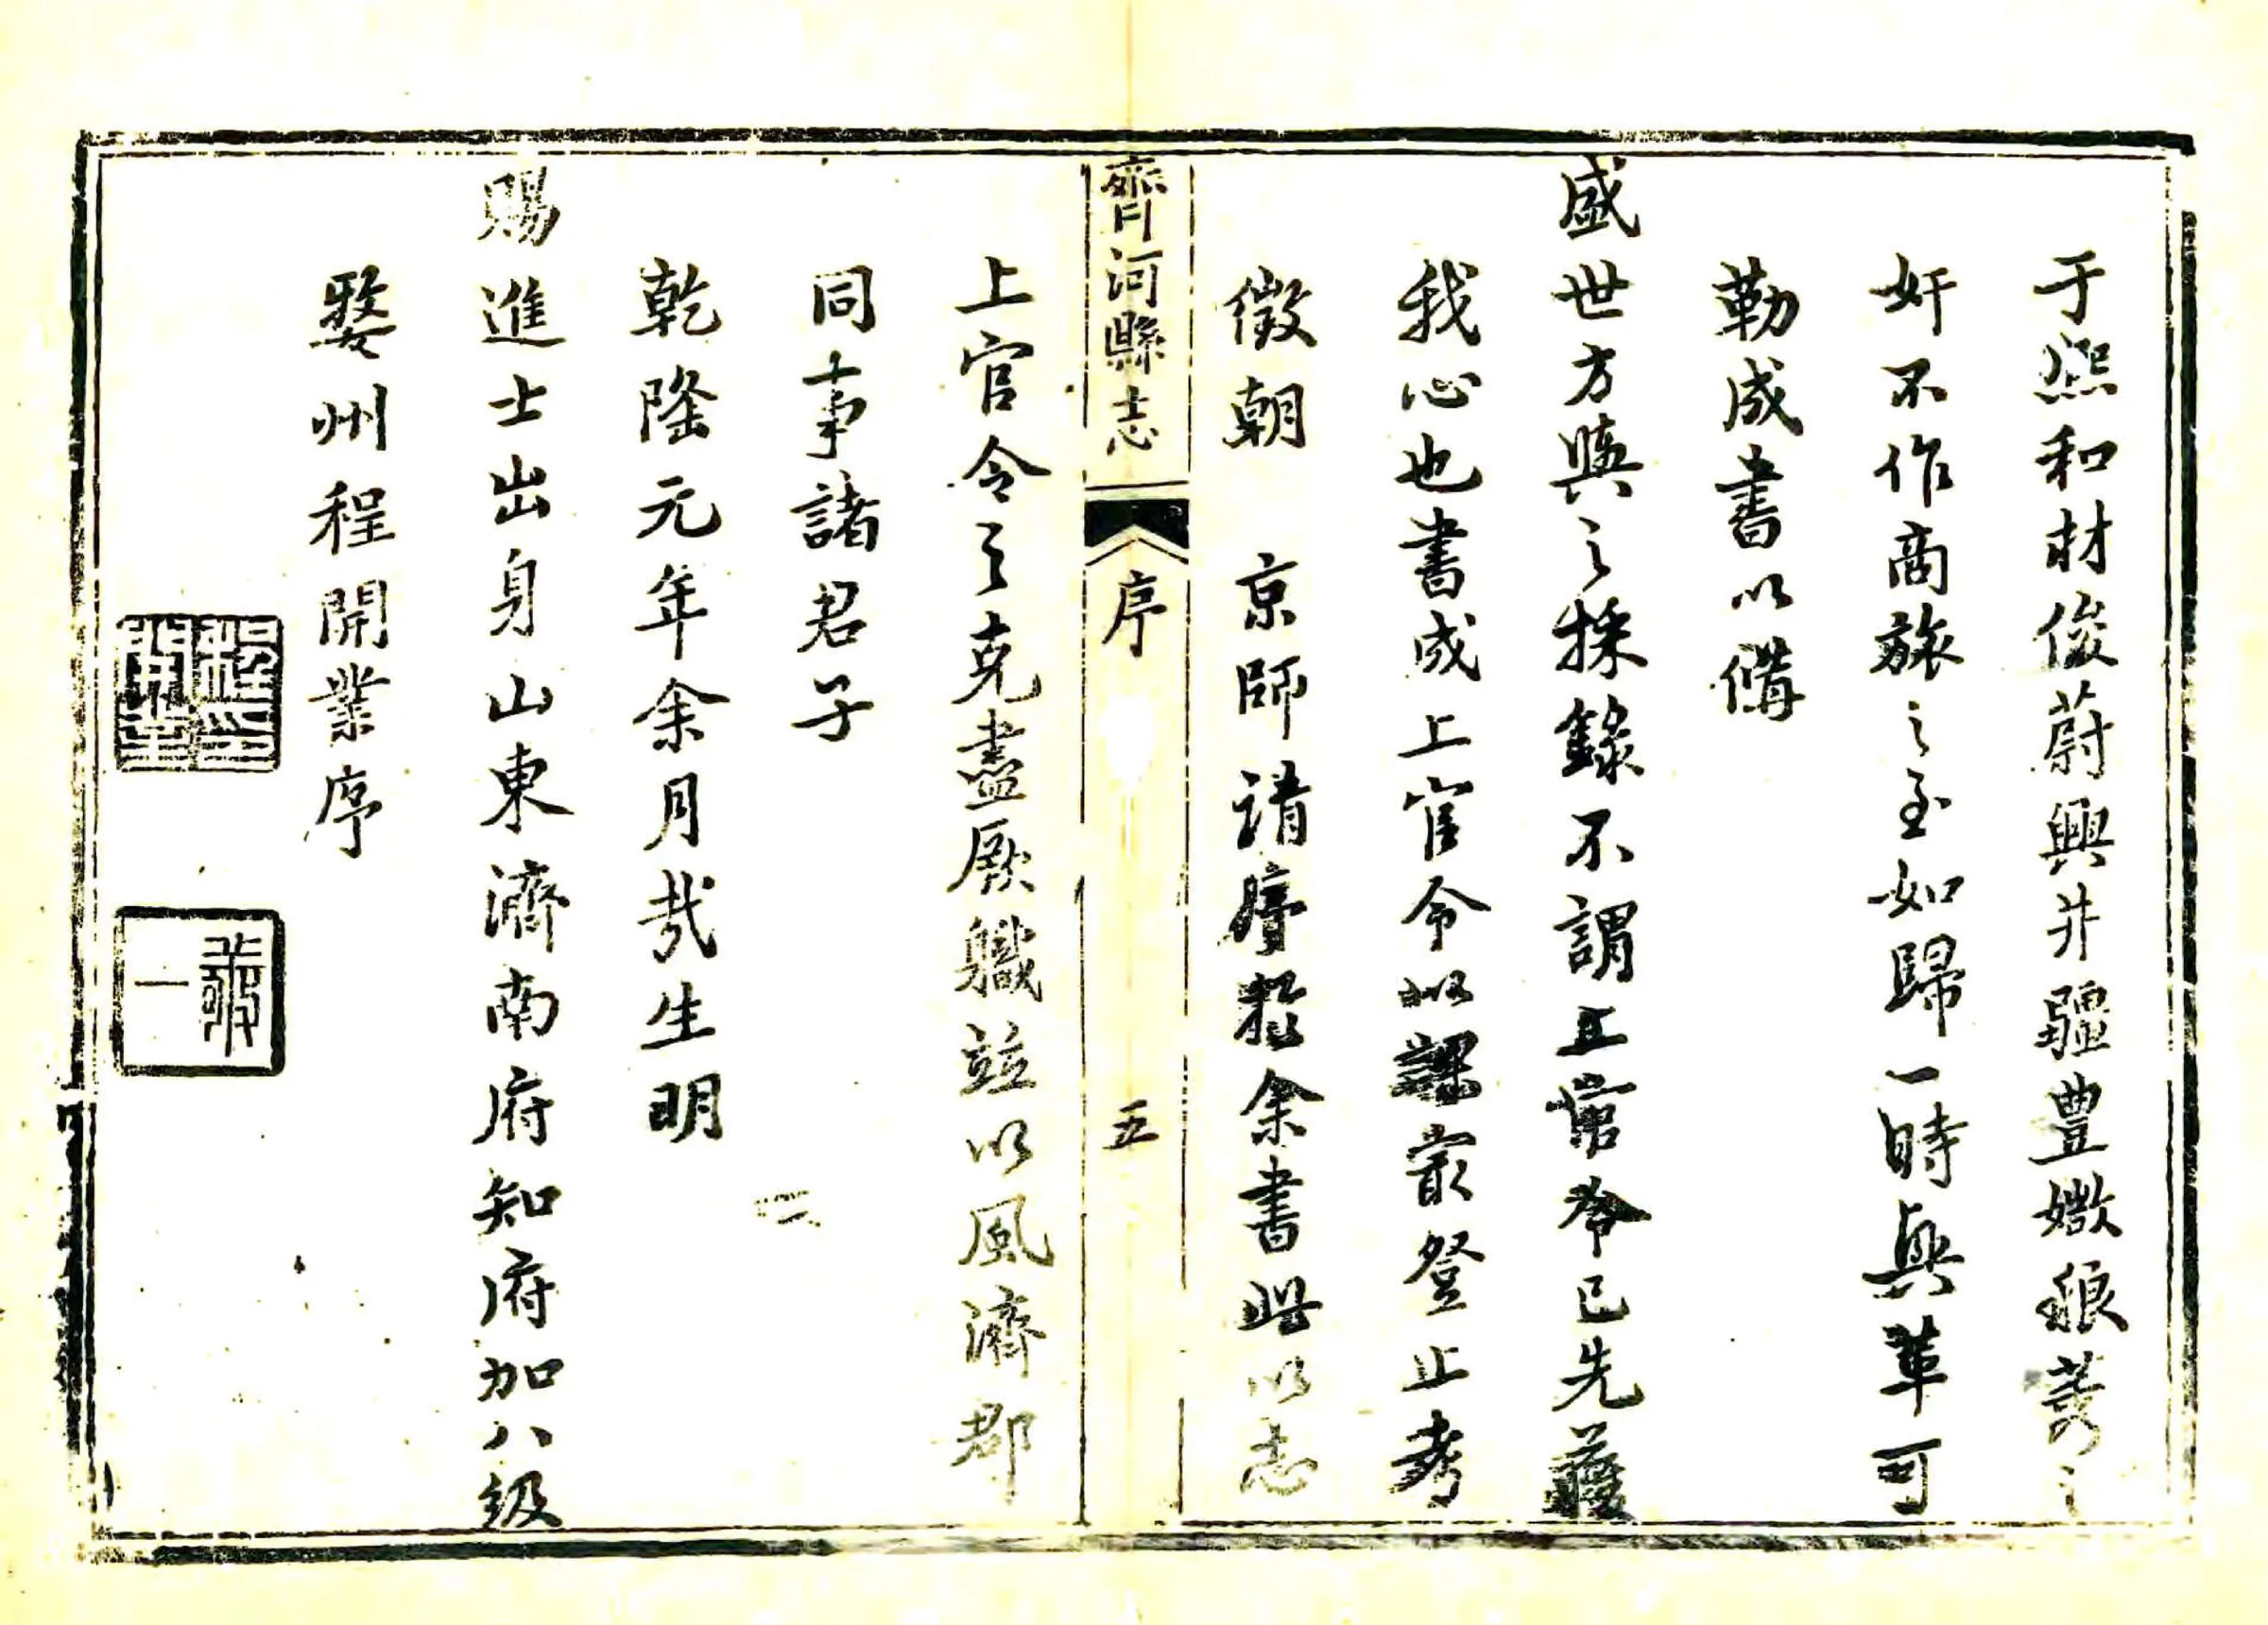 于熙和材俊蔚興井疆豊嫩稂莠之
奸不作商旅之至如歸一時興革可
勒成書以備
盛世方輿之採錄不謂上官令已先獲
我心也書成上官令以課最登上考
徵朝　京師請序於余書此以志
齊河縣志　序　五
上官令之克盡厥職並以風濟郡
同事諸君子
乾隆元年余月哉生明
賜進士出身山東濟南府知府加八級
婺州程開業序
程開業印
一